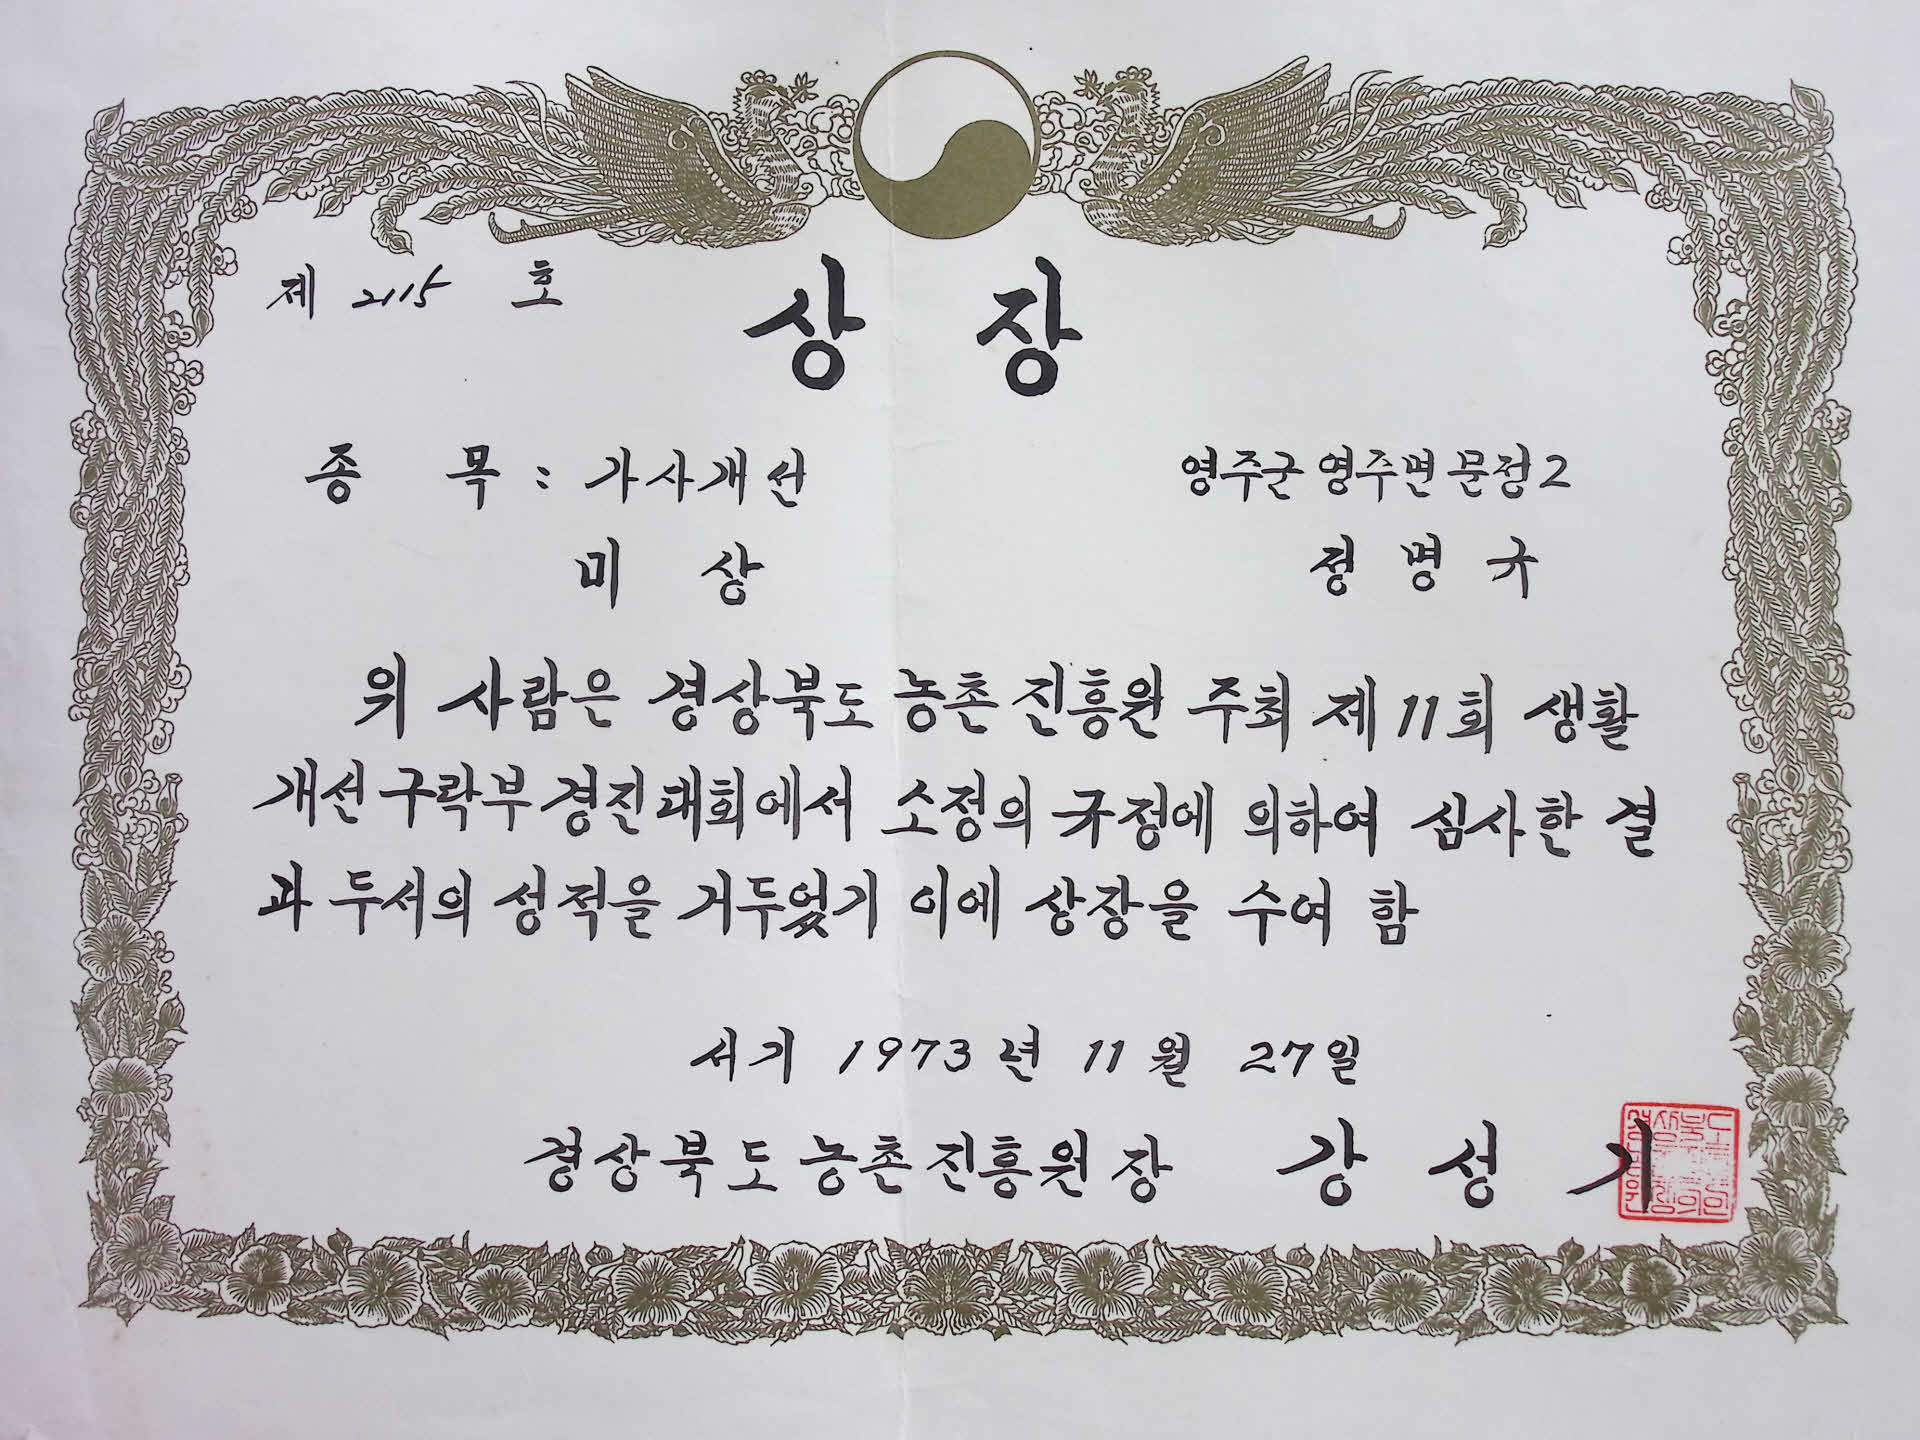 제 2115 호
상 장
종 목 : 가사개선
미 상
영주군 영주면 문정2
정 명 규
위 사람은 경상북도 농촌 진흥원 주최 제 11회 생활
개선 구락부 경진대회에서 소정의 규정에 의하여 심사한 결
과 두서의 성적을 거두었기 이에 상장을 수여 함
서기 1973 년 11 월 27일
경상북도 농촌진흥원장 강 성 기